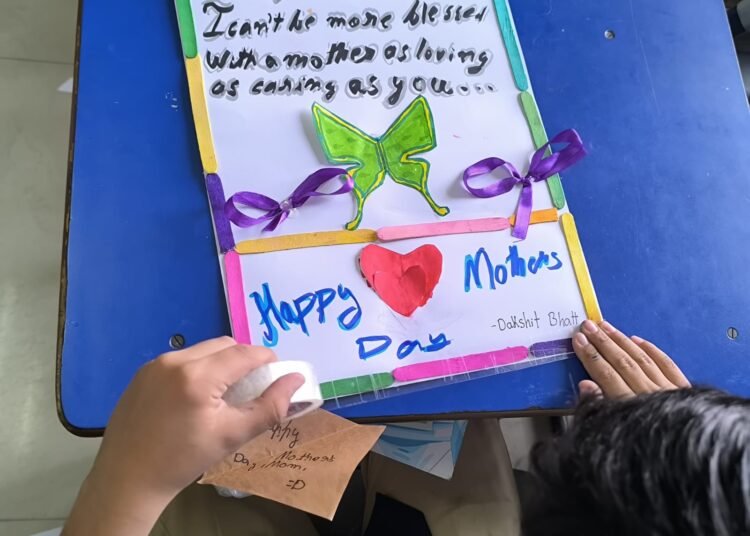 I can't be more blessed
With a mother as loving
as caring as you...
Happy Mothers
Day
-Dakshit Bhatt
Happy
Mothers
Day Mom.
=D